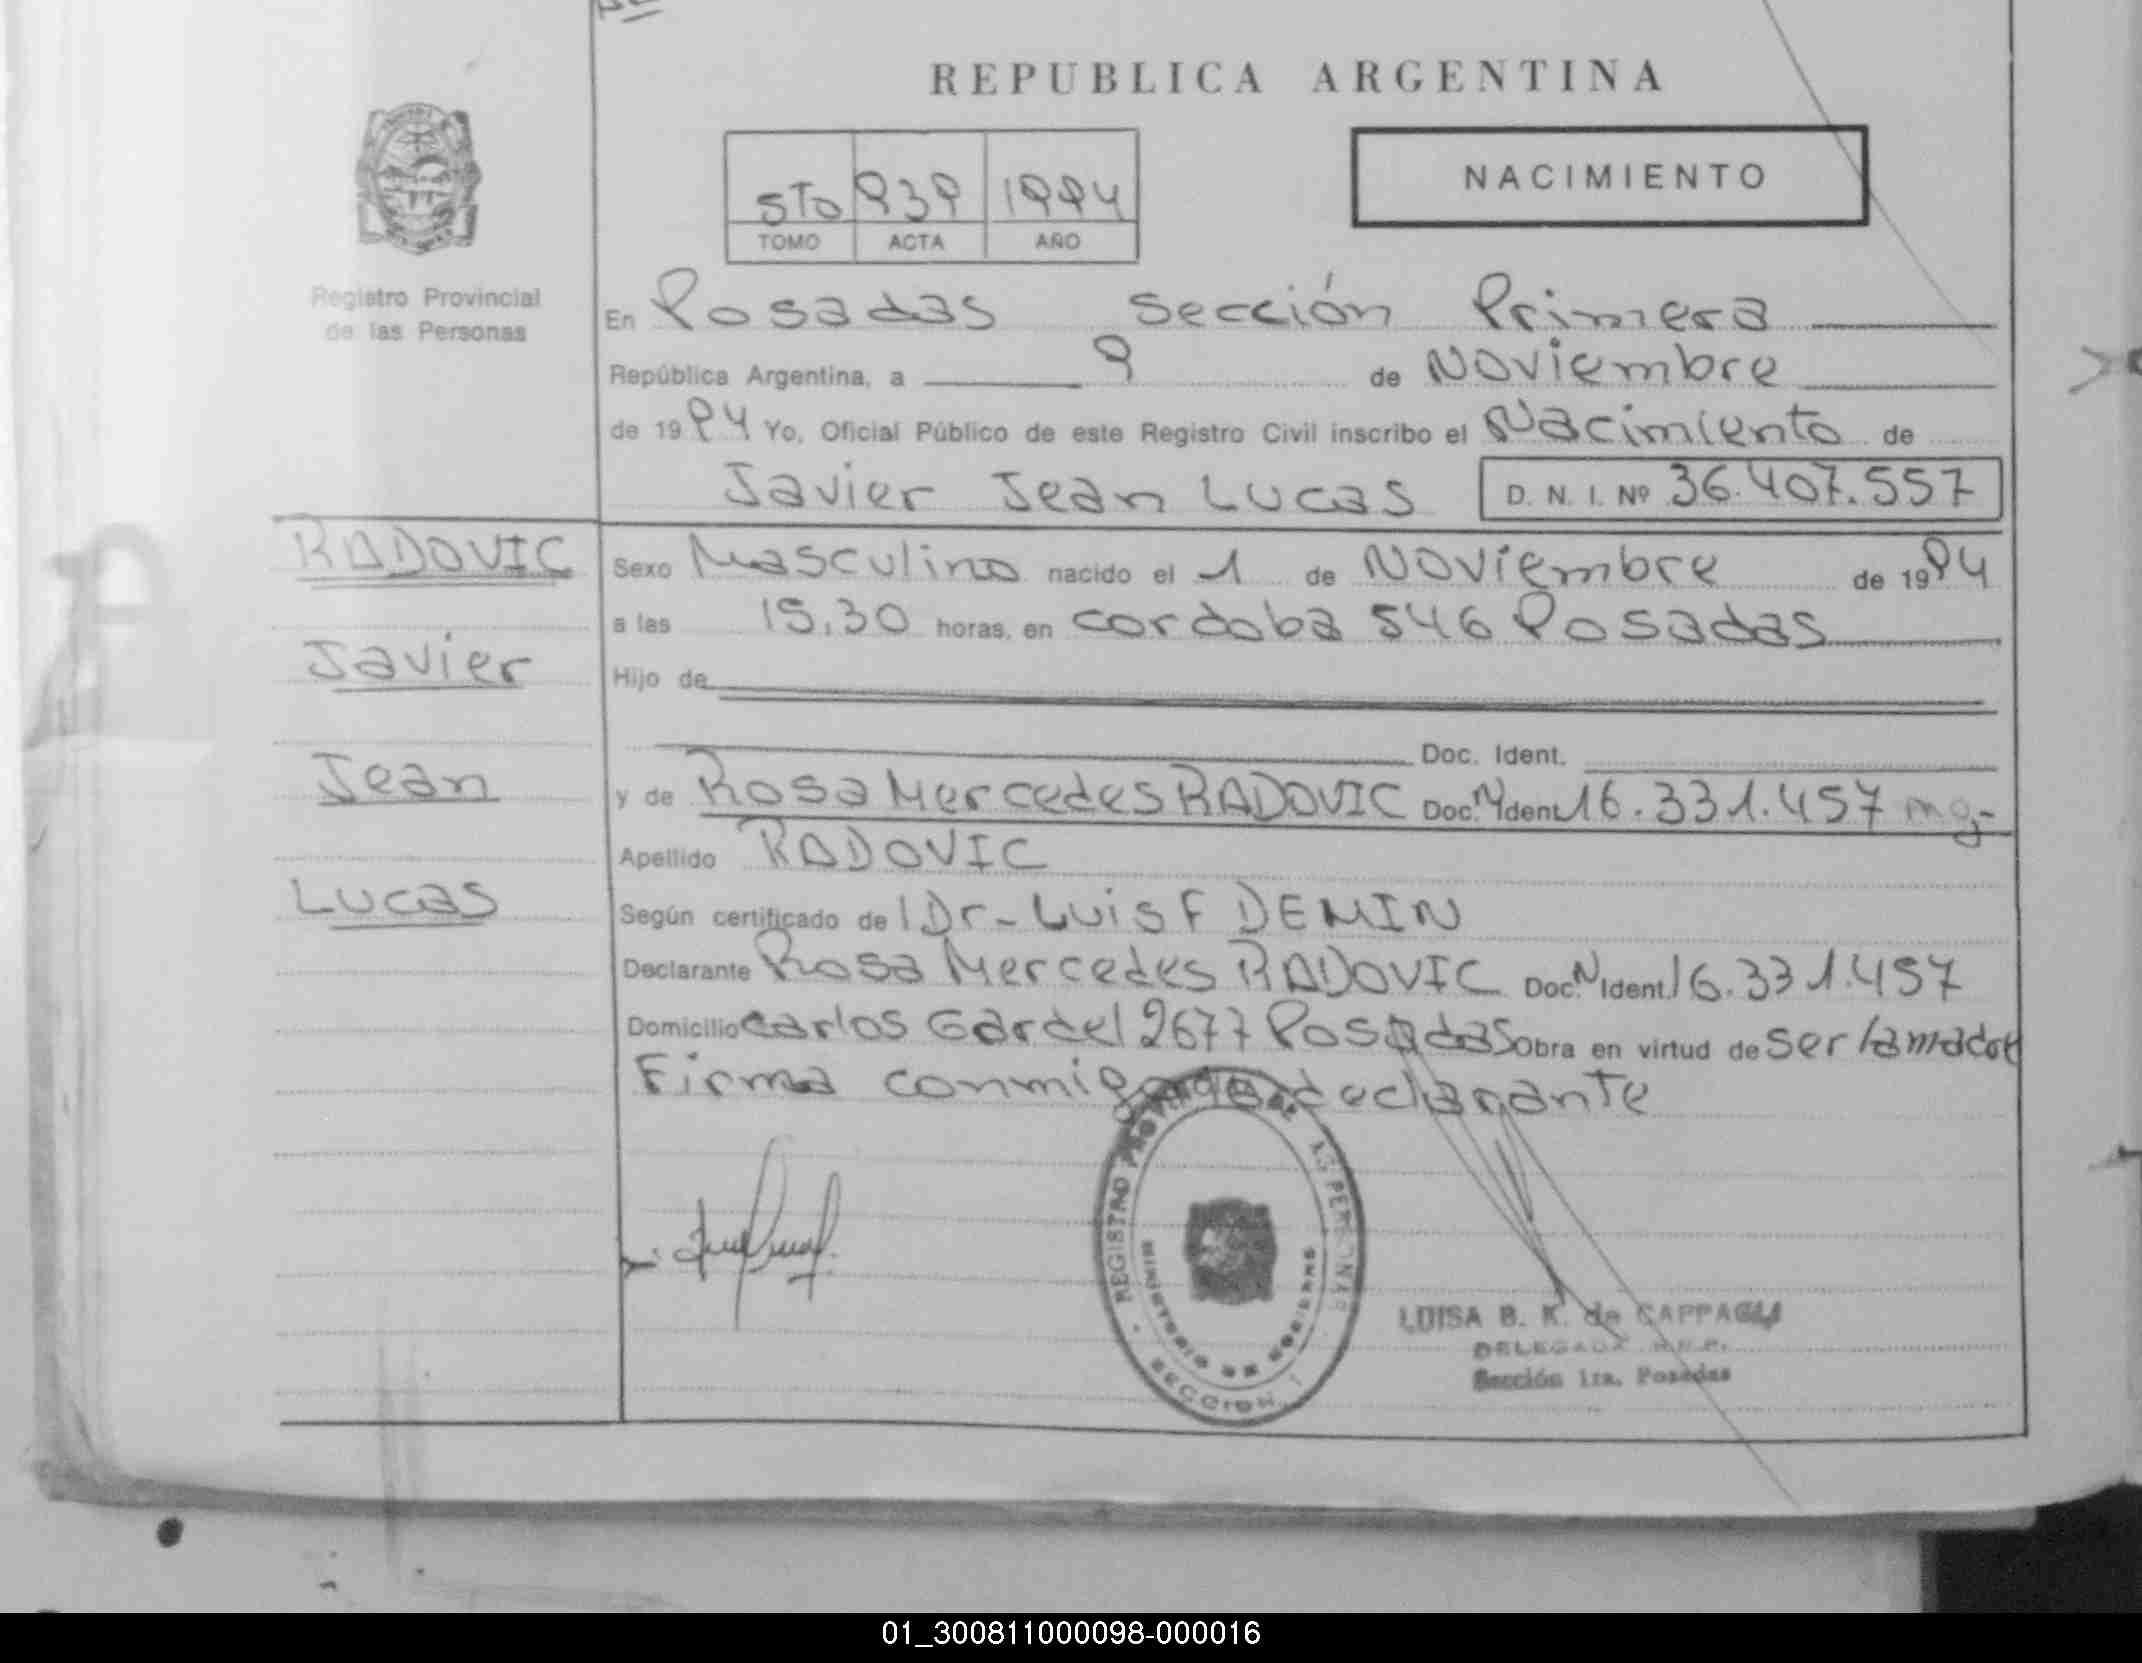 REPUBLICA ARGENTINA
5To 939 1994
TOMO ACTA AÑO
NACIMIENTO
Registro Provincial
de las Personas
En Posadas Sección Primera
República Argentina, a 9 de Noviembre
de 1994 Yo, Oficial Público de este Registro Civil inscribo el Nacimiento de
Javier Jean Lucas D. N. I. Nº 36.407.557
RADOVIC
Javier
Jean
Lucas
Sexo Masculino nacido el 1 de Noviembre de 1994
a las 15,30 horas, en cordoba 546 Posadas
Hijo de
Doc. Ident.
y de Rosa Mercedes RADOVIC Doc. N Ident 16.331.457
Apellido RADOVIC
Según certificado de l Dr- Luis F DEMIN
Declarante Rosa Mercedes RADOVIC Doc. N Ident. 16.331.457
Domicilio carlos Gardel 2677 Posadas Obra en virtud de ser la madre
Firma conmigo la declarante
REGISTRO PROVINCIAL DE LAS PERSONAS
MINISTERIO DE GOBIERNO
SECCION 1
LUISA B. K. de CAPPAGLI
DELEGADA R.P.P.
Sección 1ra. Posadas
01_300811000098-000016